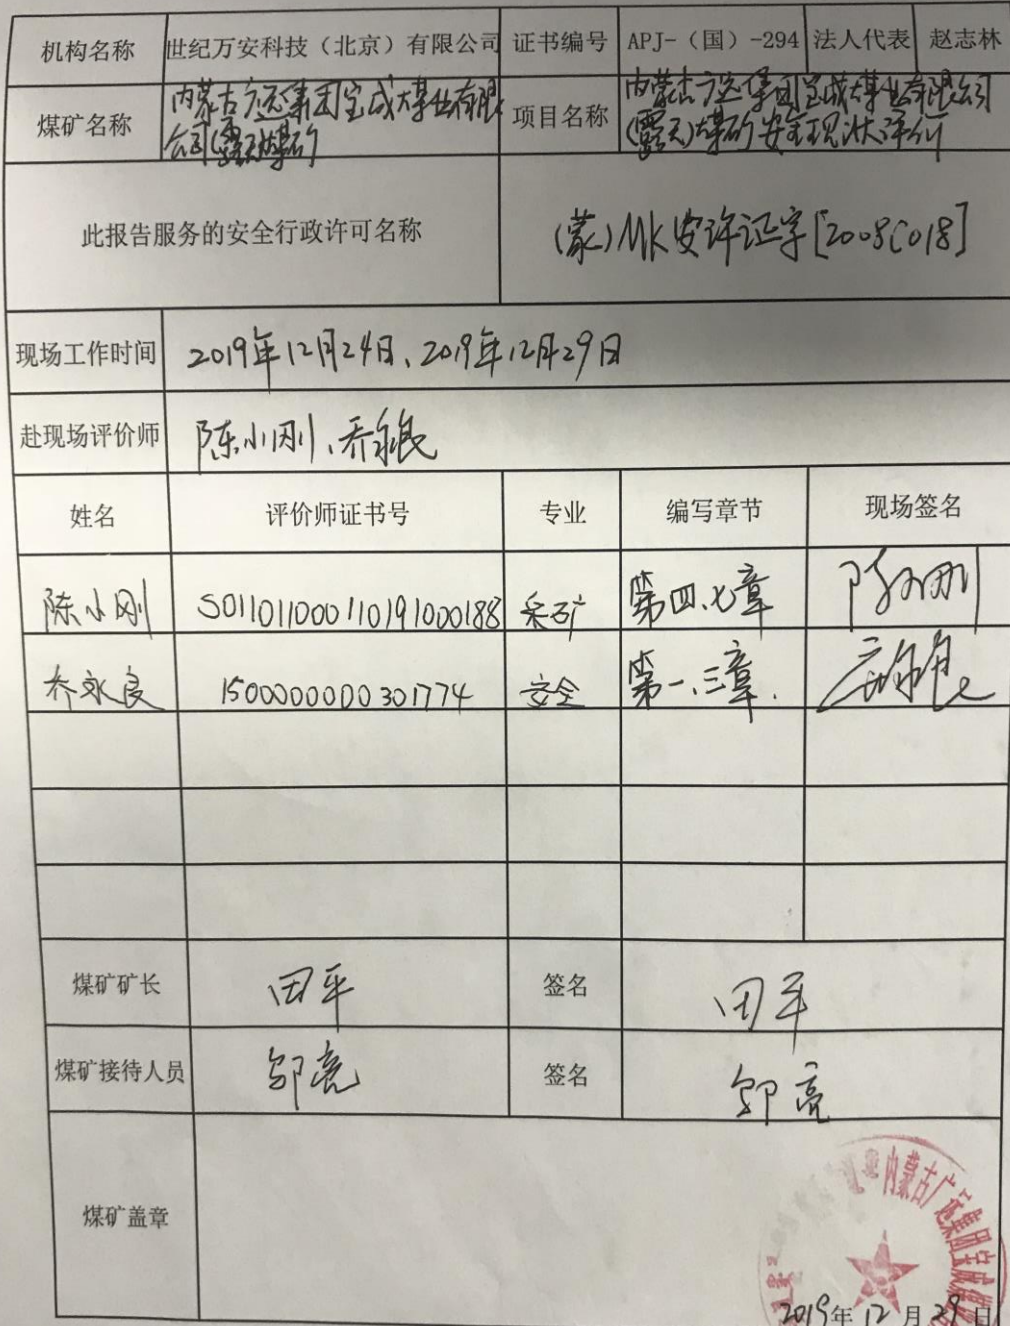 机构名称 世纪万安科技（北京）有限公司 证书编号 APJ-（国）-294 法人代表 赵志林
煤矿名称 内蒙古广远集团宝成煤业有限公司(露天)煤矿 项目名称 内蒙古广远集团宝成煤业有限公司(露天)煤矿安全现状评价
此报告服务的安全行政许可名称 (蒙)MK安许证字[2008C018]
现场工作时间 2019年12月24日、2019年12月29日
赴现场评价师 陈小刚、乔永良
姓名 评价师证书号 专业 编写章节 现场签名
陈小刚 S011011000110191000188 采矿 第四、七章 陈小刚
乔永良 1500000000301774 安全 第一、三章. 乔永良
煤矿矿长 田平 签名 田平
煤矿接待人员 邬亮 签名 邬亮
煤矿盖章
内蒙古广远集团宝成煤业
2019年12月29日